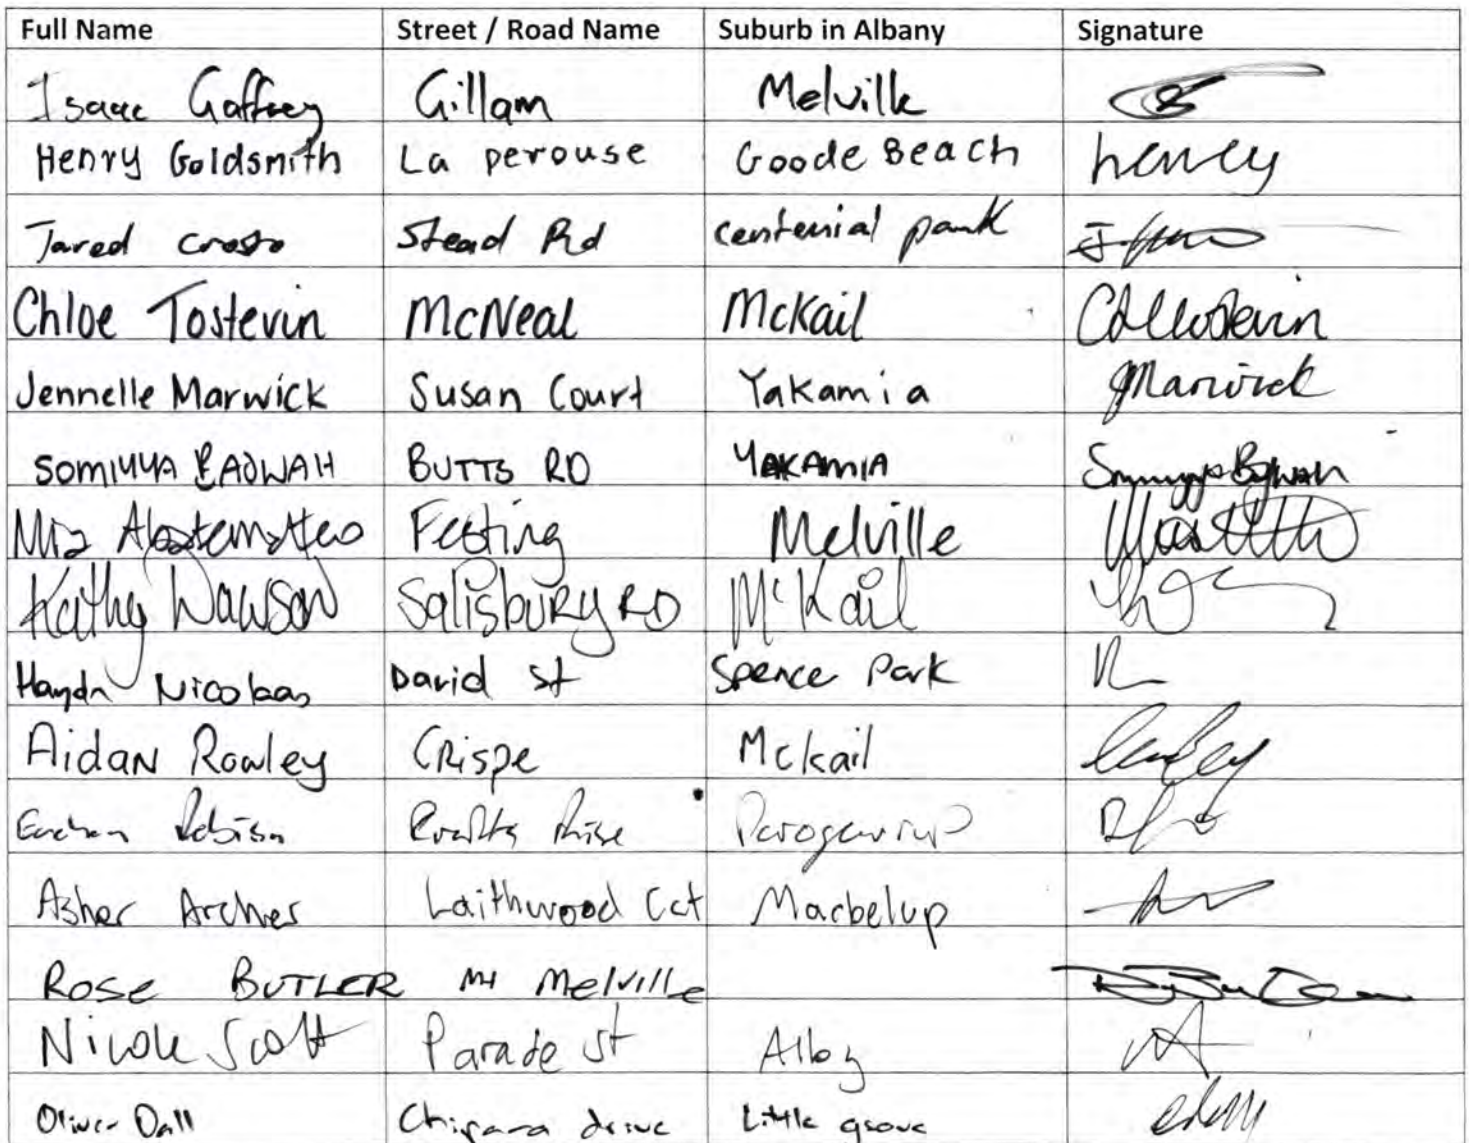 Full Name Street / Road Name Suburb in Albany Signature
Isaac Gaffney Gillam Melville
Henry Goldsmith La perouse Goode Beach henrey
Jared Stead Rd centenial park
Chloe Tostevin McNeal McKail
Jennelle Marwick Susan Court Yakamia JMarwick
SOMIYYA BADWAH BUTTS RD YAKAMIA
Mia Abatematteo Festing Melville
Kathy Dawson Salisbury RD McKail
Haydn Nicolaas David St Spence Park
Aidan Rowley Crispe Mckail
Rise
Asher Archer Laithwood Cct Marbelup
Rose BUTLER Mt Melville
Nicole Scott Parade St Alby
Oliver Dall Chipana drive Little grove